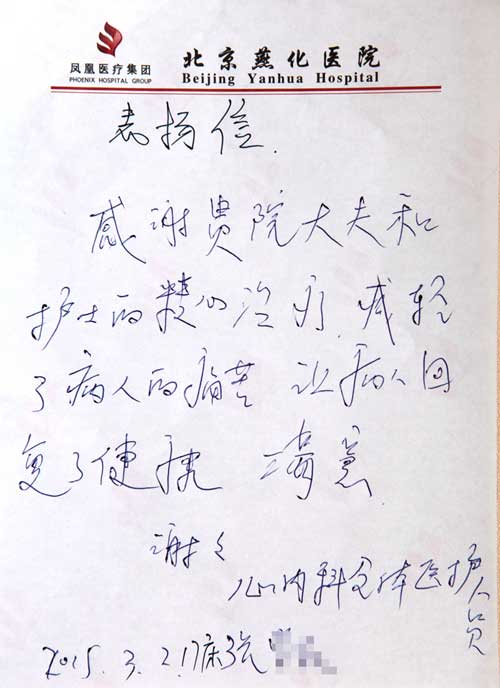 凤凰医疗集团
PHOENIX HOSPITAL GROUP
北京燕化医院
Beijing Yanhua Hospital
表扬信.
感谢贵院大夫和
护士的精心治疗 减轻
了病人的痛苦 让病人回
复了健康 满意
谢々
心内科全体医护人员
2015.3.217床张